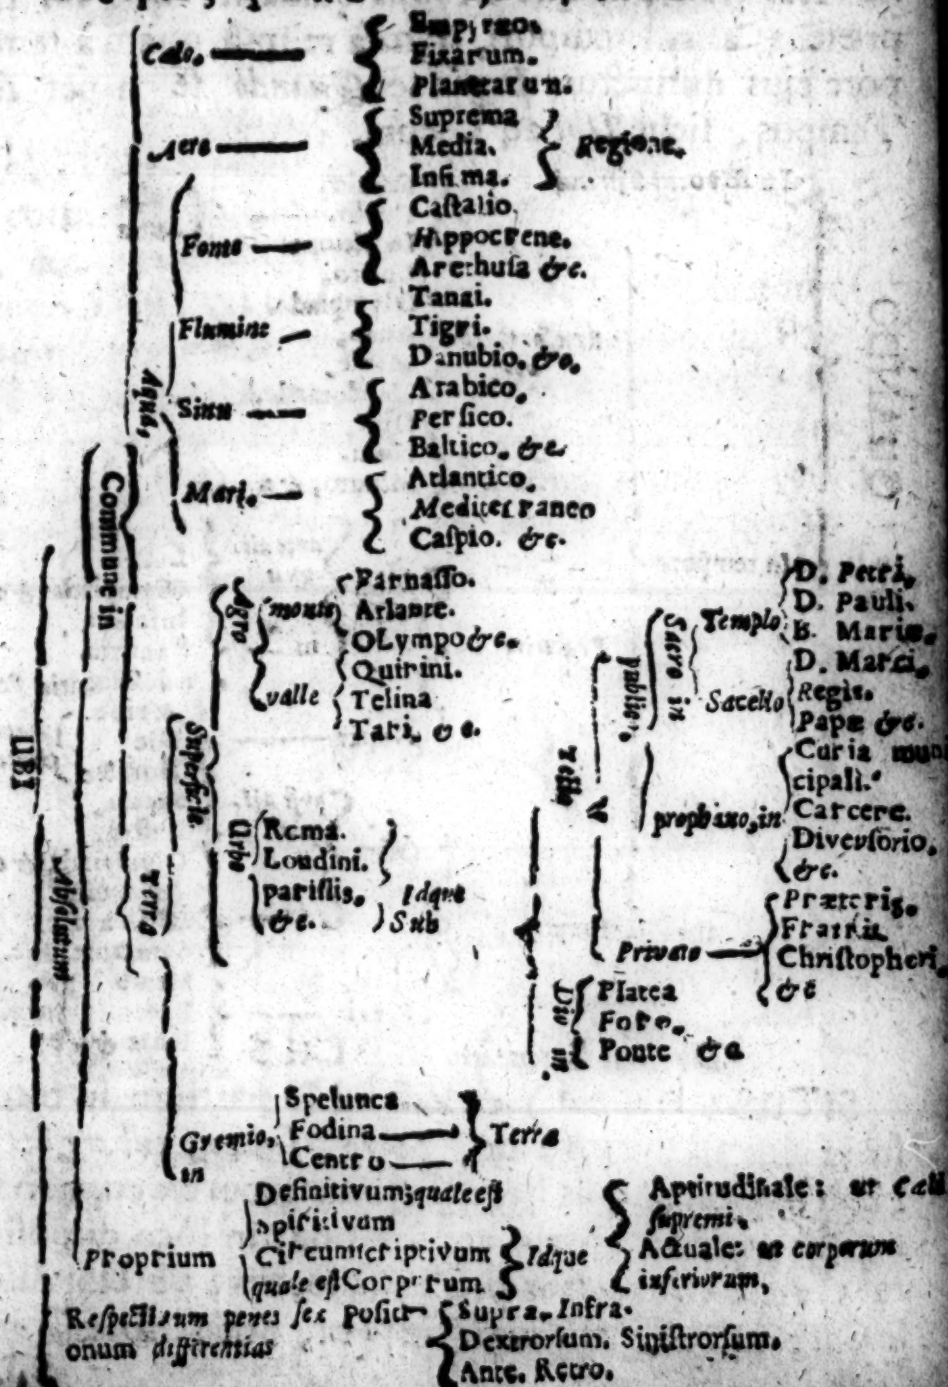 Cælo.
Empyreo.
Fixarum.
Planetarum.
Aere
Suprema
Media.
Infima.
Regione.
Aqua,
Fonte
Caſtalio.
Hippocrene.
Arethuſa &c.
Flumine
Tanai.
Tigri.
Danubio. &c.
Sinu
Arabico.
Perſico.
Baltico. &c
Mari.
Atlantico.
Mediterraneo
Caſpio. &c.
UBI
Abſolutum
Commune in
Terra
Superficie.
Agro
monte
Parnaſſo.
Atlante.
OLympo &c.
valle
Quirini.
Telina
Tari. &c.
Urbe
Romæ.
Londini.
pariſiis.
&c.
Idque
Sub
Tecto,
publico,
Sacro in
Templo
D. Petri.
D. Pauli.
B. Mariæ.
Sacello
D. Marci.
Regis.
Papæ &c.
prophano, in
Curia muni
cipali.
Carcere.
Diverſorio.
&c.
Privato
Prætoris.
Fratris
Chriſtopheri.
&c
Div in
Platea
Foro.
Ponte &c
Gremio,
in
Spelunca
Fodina
Centro
Terræ
Proprium
Definitivum; quale eſt
Circumſcriptivum
quale eſt Corporum
Idque
Aptitudinale: ut Cæli
ſupremi.
Actuale: ut corporum
inferiorum.
Reſpectivum penes ſex Poſiti-
onum differentias
Supra. Infra.
Dextrorſum. Siniſtrorſum.
Ante. Retro.